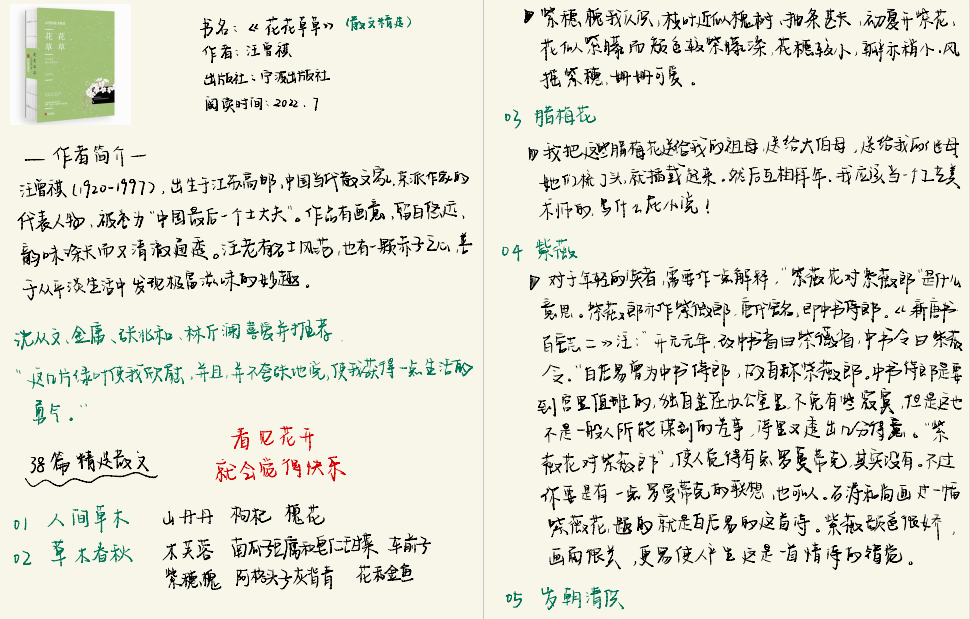 花花草草
书名：《花花草草》（散文精选）
作者：汪曾祺
出版社：宁波出版社
阅读时间：2022.7
— 作者简介 —
汪曾祺（1920-1997），出生于江苏高邮，中国当代散文家，京派作家的
代表人物，被誉为“中国最后一个士大夫”。作品有画意，昭自悠远，
韵味悠长而又清澈通透。汪老有名士风范，也有一颗赤子之心，善
于从平淡生活中发现极富滋味的妙趣。
沈从文、金庸、张兆和、林斤澜喜爱并推荐
“这几片绿叶使我欣慰，并且，并不夸张地说，使我获得一点生活的
勇气。”
看见花开
就会觉得快乐
38篇精选散文
01 人间草木 山丹丹 枸杞 槐花
02 草木春秋 木芙蓉 南瓜子豆腐和皂仁甜菜 车前子
紫穗槐 阿格头子灰背青 花和金鱼
紫穗槐我认识，枝叶近似槐树，抽条甚长，初夏开紫花，
花似紫藤而颜色较紫藤深，花穗较小，瓣亦稍小。风
摇紫穗，姗姗可爱。
03 腊梅花
我把这些腊梅花送给我的祖母，送给大伯母，送给我的继母
她们梳了头，就插戴起来。然后互相拜年。我应该当一个工艺美
术师的，写什么屁小说！
04 紫薇
对于年轻的读者，需要作一点解释，“紫薇花对紫薇郎”是什么
意思。紫薇郎亦作紫微郎，唐代官名，即中书侍郎。《新唐书
百官志二》注：“开元元年，改中书省曰紫微省，中书令曰紫微
令。”白居易曾为中书侍郎，故自称紫薇郎。中书侍郎是要
到宫里值班的，独自坐在办公室里，不免有些寂寞，但是这也
不是一般人所能谋到的差事，诗里又透出几分得意。“紫
薇花对紫薇郎”，使人觉得有点罗曼蒂克，其实没有。不过
你要是有一点罗曼蒂克的联想，也可以。石涛和尚画过一幅
紫薇花，题的就是白居易的这首诗。紫薇颜色很娇，
画面很美，更易使人产生这是一首情诗的错觉。
05 岁朝清供